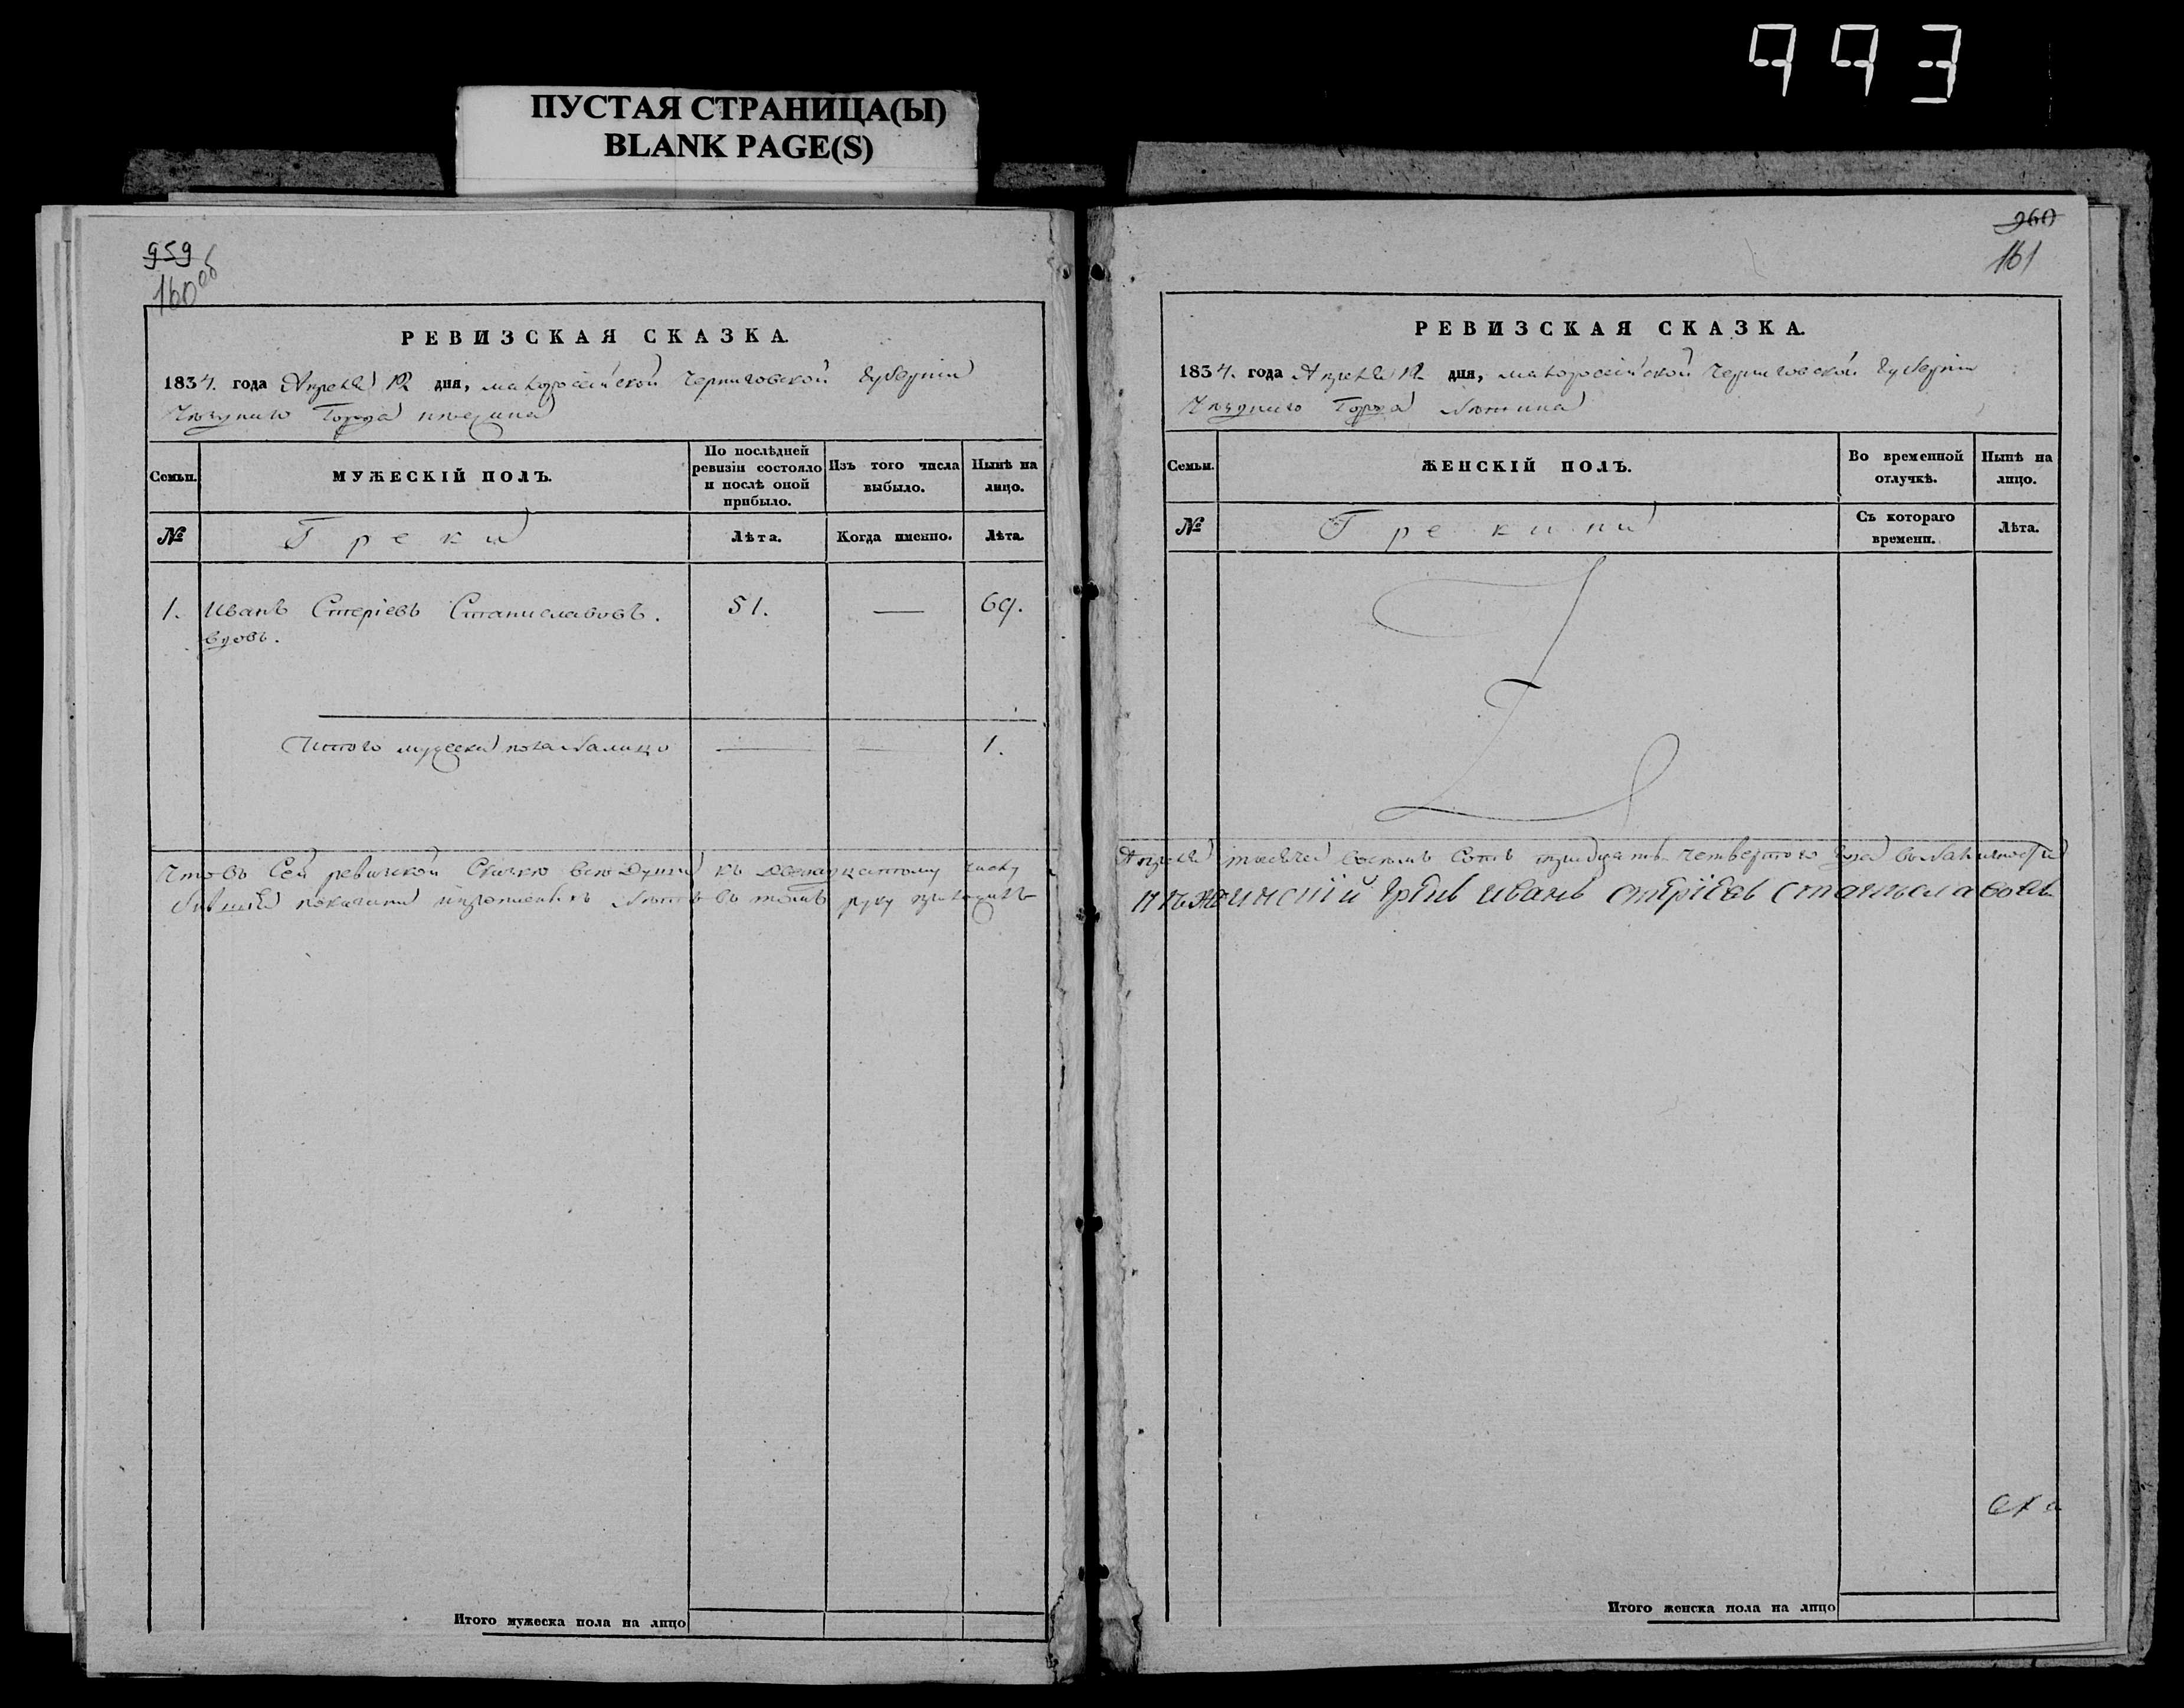 993
ПУСТАЯ СТРАНИЦА(Ы)
BLANK PAGE(S)
959
160 об
РЕВИЗСКАЯ СКАЗКА.
1834. года Апреля 12 дня, малороссійской Черниговской Губерніи
Города Нежина
Семьи.
МУЖЕСКІЙ ПОЛЪ.
По послѣдней ревизіи состояло и послѣ оной прибыло.
Изъ того числа выбыло.
Нынѣ на лицо.
№
Греки
Лѣта.
Когда именно.
Лѣта.
1. Иванъ Стеріевъ Станиславовъ. 51. — 69.
вдовъ.
Итого мужеска пола налицо — — 1.
Что въ сей ревизской Скаске всю Души къ двенадцатому числу
въ томъ руку
Итого мужеска пола на лицо
960
161
РЕВИЗСКАЯ СКАЗКА.
1834. года Апреля 12 дня, малороссійской Черниговской Губерніи
Города Нежина
Семьи.
ЖЕНСКІЙ ПОЛЪ.
Во временной отлучкѣ.
Нынѣ на лицо.
№
Грекини
Съ котораго времени.
Лѣта.
Апреля тысяча восемь сотъ тридцать четвертого года
нѣжинскій грекъ иванъ стеріевъ станиславовъ
Итого женска пола на лицо